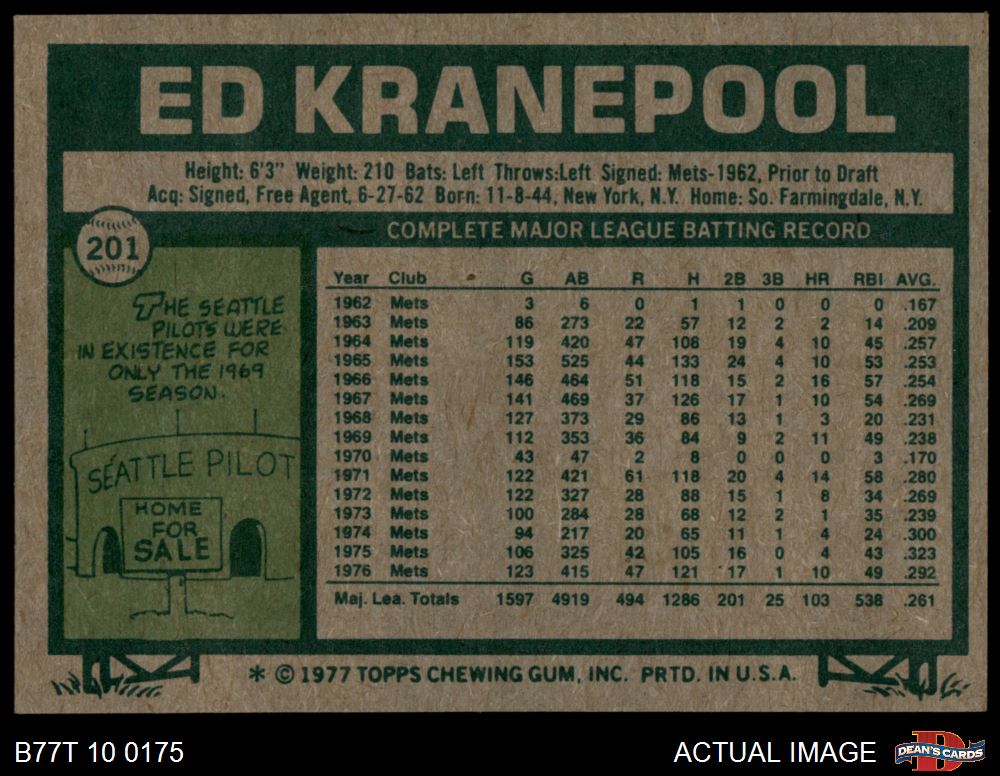 ED KRANEPOOL
Height: 6'3" Weight: 210 Bats: Left Throws:Left Signed: Mets-1962, Prior to Draft
Acq: Signed, Free Agent, 6-27-62 Born: 11-8-44, New York, N.Y. Home: So. Farmingdale, N.Y.
201
THE SEATTLE
PILOTS WERE
IN EXISTENCE FOR
ONLY THE 1969
SEASON.
SEATTLE PILOT
HOME
FOR
SALE
COMPLETE MAJOR LEAGUE BATTING RECORD
Year Club G AB R H 2B 3B HR RBI AVG.
1962 Mets 3 6 0 1 1 0 0 0 .167
1963 Mets 86 273 22 57 12 2 2 14 .209
1964 Mets 119 420 47 108 19 4 10 45 .257
1965 Mets 153 525 44 133 24 4 10 53 .253
1966 Mets 146 464 51 118 15 2 16 57 .254
1967 Mets 141 469 37 126 17 1 10 54 .269
1968 Mets 127 373 29 86 13 1 3 20 .231
1969 Mets 112 353 36 84 9 2 11 49 .238
1970 Mets 43 47 2 8 0 0 0 3 .170
1971 Mets 122 421 61 118 20 4 14 58 .280
1972 Mets 122 327 28 88 15 1 8 34 .269
1973 Mets 100 284 28 68 12 2 1 35 .239
1974 Mets 94 217 20 65 11 1 4 24 .300
1975 Mets 106 325 42 105 16 0 4 43 .323
1976 Mets 123 415 47 121 17 1 10 49 .292
Maj. Lea. Totals 1597 4919 494 1286 201 25 103 538 .261
* © 1977 TOPPS CHEWING GUM, INC. PRTD. IN U.S.A.
B77T 10 0175
ACTUAL IMAGE
D
DEAN'S CARDS